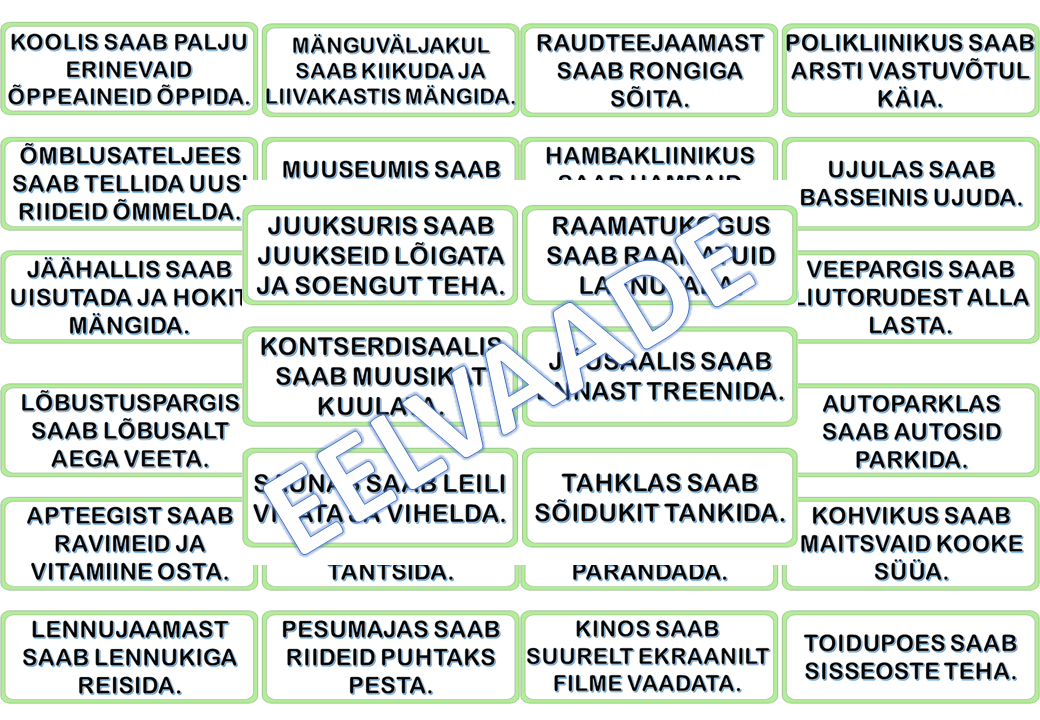 KOOLIS SAAB PALJU
ERINEVAID
ÕPPEAINEID ÕPPIDA.
MÄNGUVÄLJAKUL
SAAB KIIKUDA JA
LIIVAKASTIS MÄNGIDA.
RAUDTEEJAAMAST
SAAB RONGIGA
SÕITA.
POLIKLIINIKUS SAAB
ARSTI VASTUVÕTUL
KÄIA.
ÕMBLUSATELJEES
SAAB TELLIDA UUSI
RIIDEID ÕMMELDA.
MUUSEUMIS SAAB
HAMBAKLIINIKUS
SAAB HAMBAID
UJULAS SAAB
BASSEINIS UJUDA.
JUUKSURIS SAAB
JUUKSEID LÕIGATA
JA SOENGUT TEHA.
RAAMATUKOGUS
SAAB RAAMATUID
JÄÄHALLIS SAAB
UISUTADA JA HOKIT
MÄNGIDA.
VEEPARGIS SAAB
LIUTORUDEST ALLA
LASTA.
KONTSERDISAALIS
SAAB MUUSIKAT
KUULATA.
JÕUSAALIS SAAB
ENNAST TREENIDA.
LÕBUSTUSPARGIS
SAAB LÕBUSALT
AEGA VEETA.
AUTOPARKLAS
SAAB AUTOSID
PARKIDA.
SAUNAS SAAB LEILI
VISATA JA VIHELDA.
TAHKLAS SAAB
SÕIDUKIT TANKIDA.
EELVAADE
APTEEGIST SAAB
RAVIMEID JA
VITAMIINE OSTA.
TANTSIDA.
PARANDADA.
KOHVIKUS SAAB
MAITSVAID KOOKE
SÜÜA.
LENNUJAAMAST
SAAB LENNUKIGA
REISIDA.
PESUMAJAS SAAB
RIIDEID PUHTAKS
PESTA.
KINOS SAAB
SUURELT EKRAANILT
FILME VAADATA.
TOIDUPOES SAAB
SISSEOSTE TEHA.